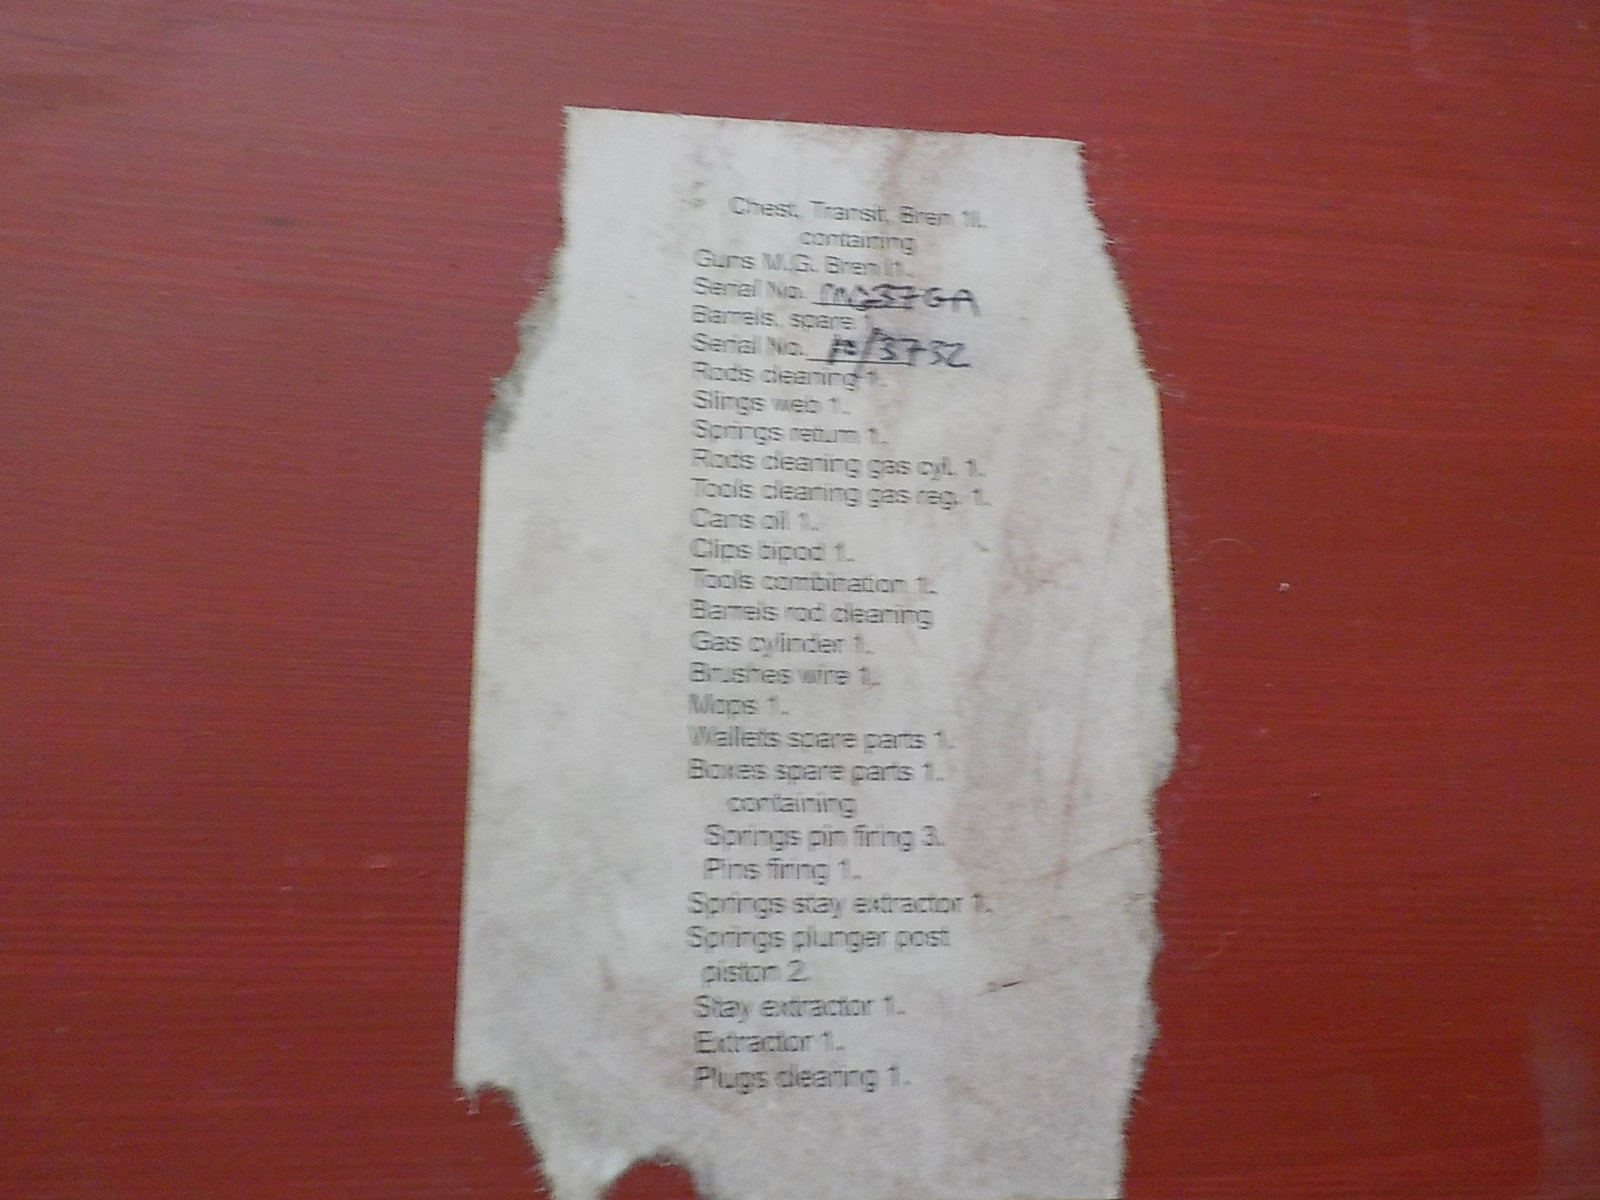 Chest, Transit, Bren 1.
containing
Guns M.G. Bren 1.
Serial No.
Barrels, spare 1.
Serial No. /3732
Rods cleaning 1.
Slings web 1.
Springs return 1.
Rods cleaning gas cyl. 1.
Tools cleaning gas reg. 1.
Cans oil 1.
Clips bipod 1.
Tools combination 1.
Barrels rod cleaning
Gas cylinder 1.
Brushes wire 1.
Mops 1.
Wallets spare parts 1.
Boxes spare parts 1.
containing
Springs pin firing 3.
Pins firing 1.
Springs stay extractor 1.
Springs plunger post
piston 2.
Stay extractor 1.
Extractor 1.
Plugs clearing 1.